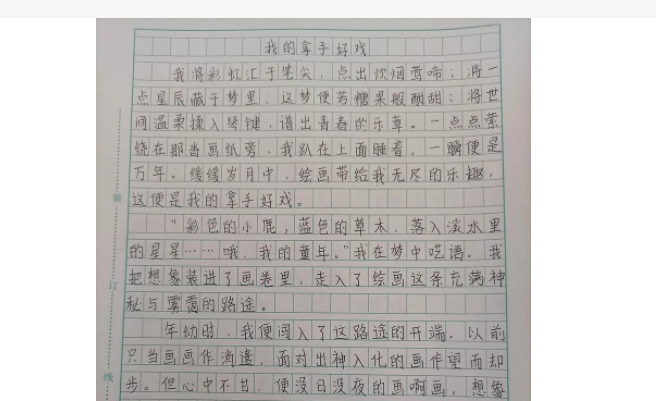 我的拿手好戏
我将彩虹汇于笔尖，点出炊烟莺啼；将一
点星辰藏于梦里，这梦便若糖果般酣甜；将世
间温柔揉入琴键，谱出青春的乐章。一点点萦
绕在那沓画纸旁，我趴在上面睡着，一瞬便是
万年。缓缓岁月中，绘画带给我无尽的乐趣，
这便是我的拿手好戏。
“彩色的小鹿，蓝色的草木，落入溪水里
的星星……哦，我的童年。”我在梦中呓语。我
把想象装进了画卷里，走入了绘画这条充满神
秘与雾霭的路途。
年幼时，我便闯入了这路途的开端。以前
只当画画作消遣，面对出神入化的画作望而却
步。但心中不甘，便没日没夜的画啊画，想象
装
订
线